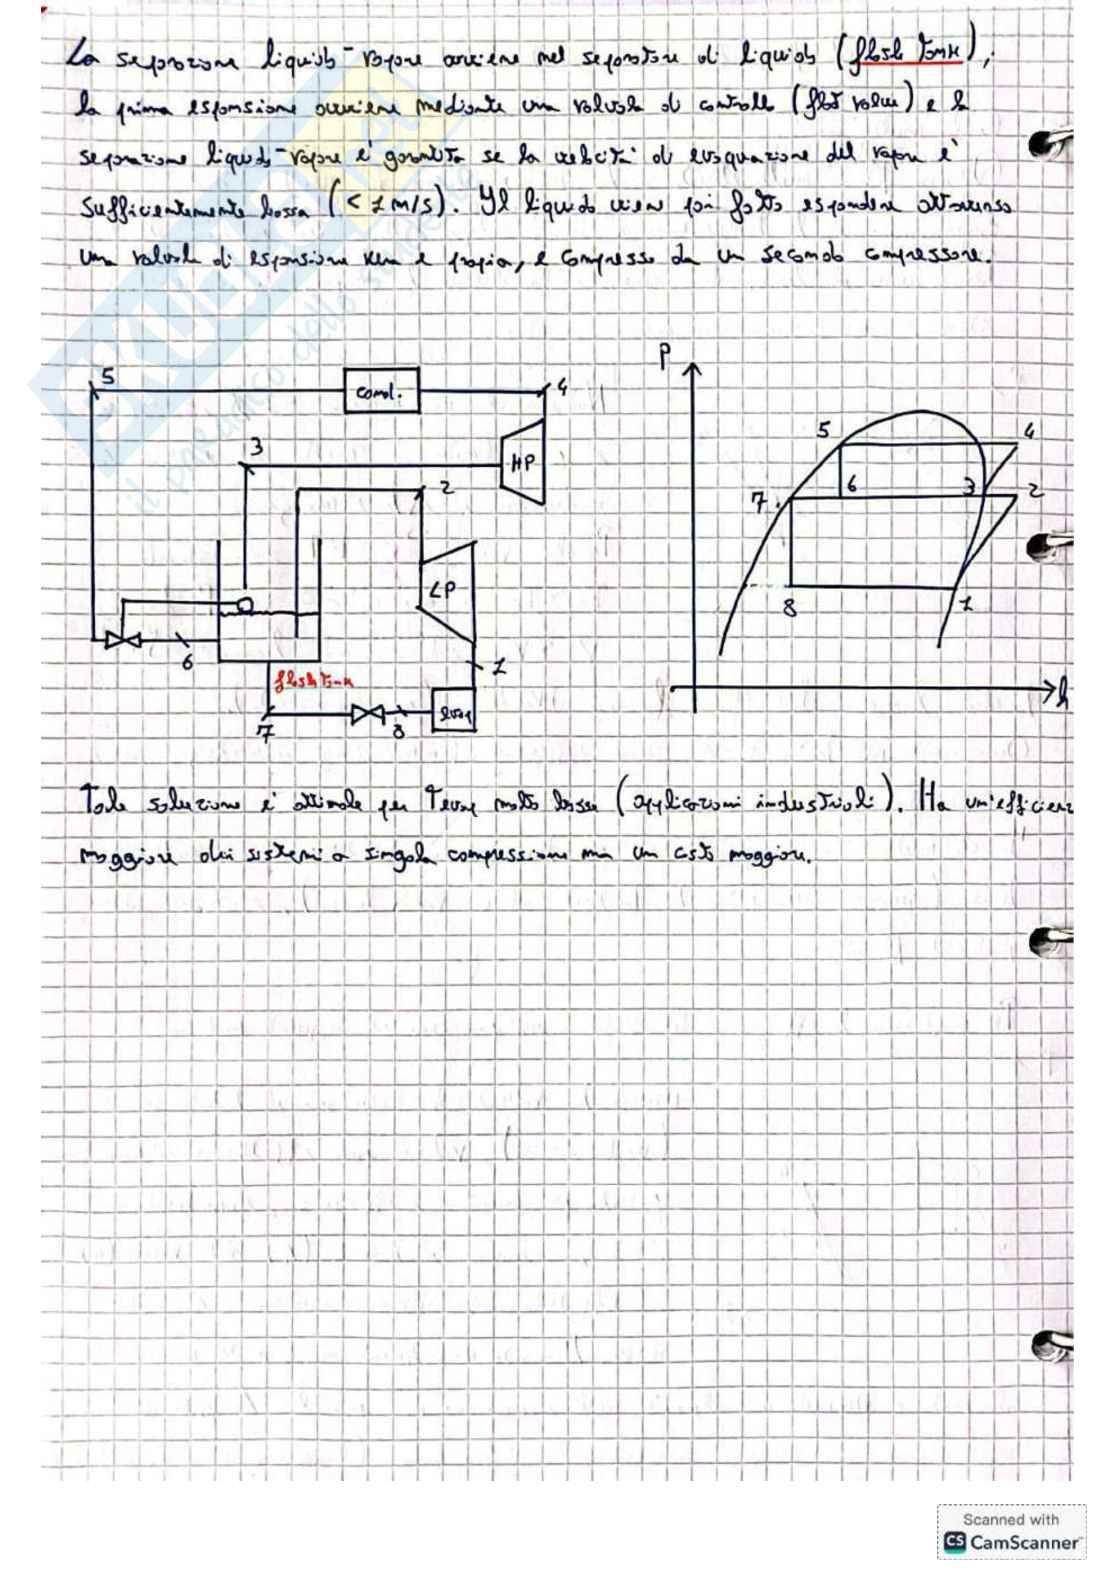 La separazione liquido-vapore avviene nel separatore di liquido (flash tank),
la prima espansione avviene mediante una valvola di controllo (flot valve) e la
separazione liquido-vapore e' garantita se la velocita' di evaquazione del vapore e'
sufficientemente bassa (< 1 m/s). Il liquido viene poi fatto espandere attraverso
una valvola di espansione vera e propia, e compresso da un secondo compressore.
5
cond.
4
3
HP
2
LP
6
1
flash tank
7
8
evap
P
5
4
7
6
3
2
8
1
h
Tale soluzione e' ottimale per Tevap molto basse (applicazioni industriali). Ha un'efficienz
maggiore dei sistemi a singola compressione ma un costo maggiore.
Scanned with
CS CamScanner